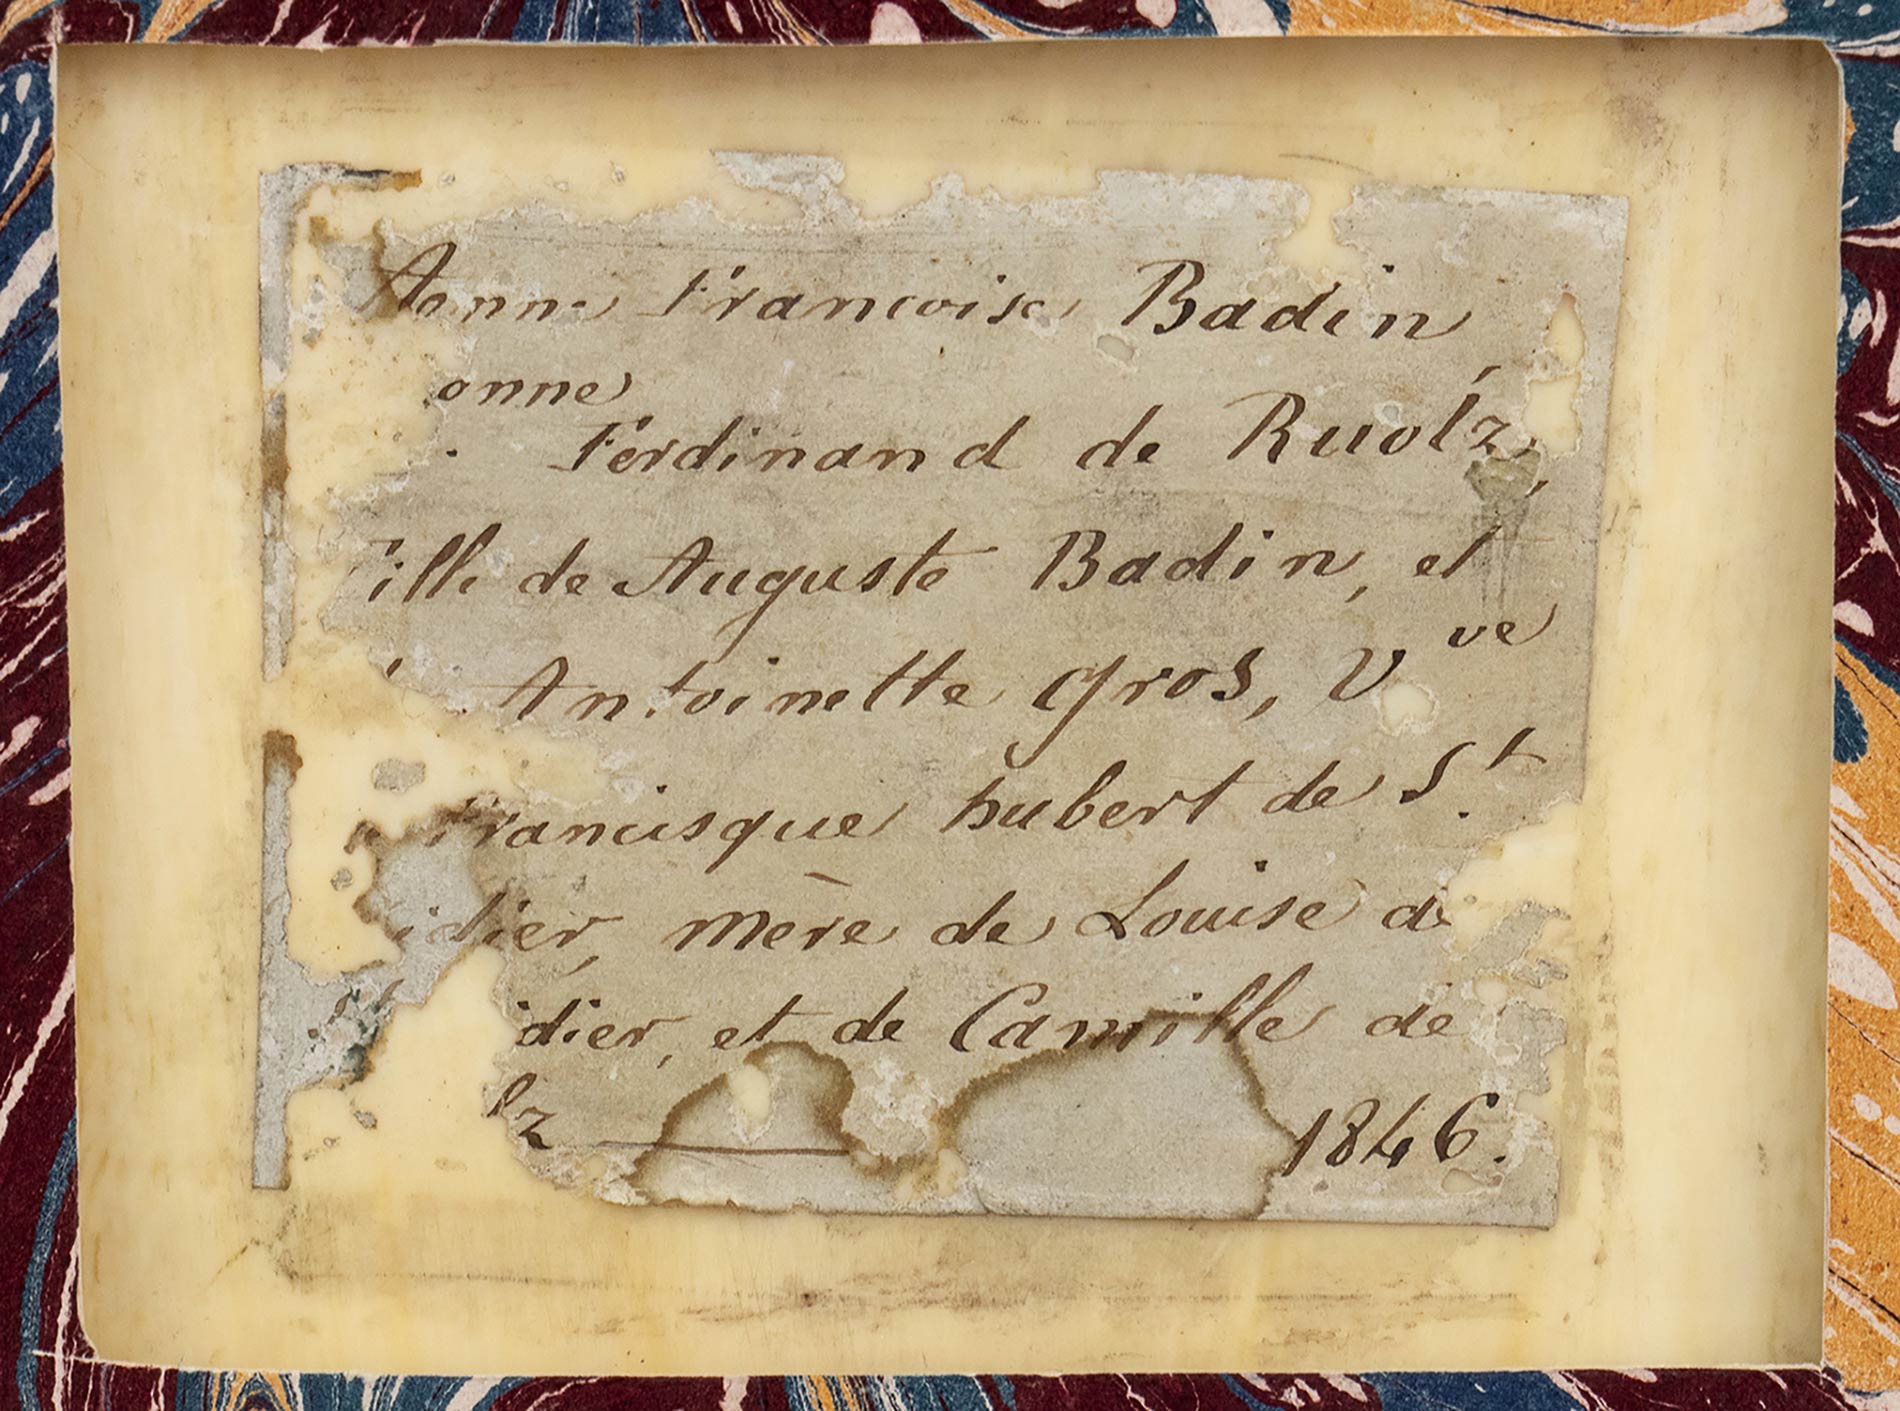 Anne Francoise Badin,
onne
Ferdinand de Ruolz,
fille de Auguste Badin, et
Antoinette Gros, Vve
Francisque hubert de St.
idier, mère de Louise de
idier, et de Camille de
lz 1846.